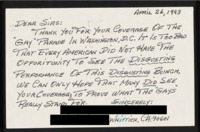 April 26, 1993
DEAR SIRS:
THANK YOU FOR YOUR COVERAGE OF THE
"GAY" PARADE IN WASHINGTON, D.C. IT IS TOO BAD
THAT EVERY AMERICAN DID NOT HAVE THE
OPPORTUNITY TO SEE THE DISGUSTING
PERFORMANCE OF THIS DISGUSTING BUNCH.
WE CAN ONLY HOPE THAT MANY DID SEE
YOUR COVERAGE, TO PROVE WHAT THE GAYS
REALLY STAND FOR. SINCERELY:
WHITTIER, CA. 90601